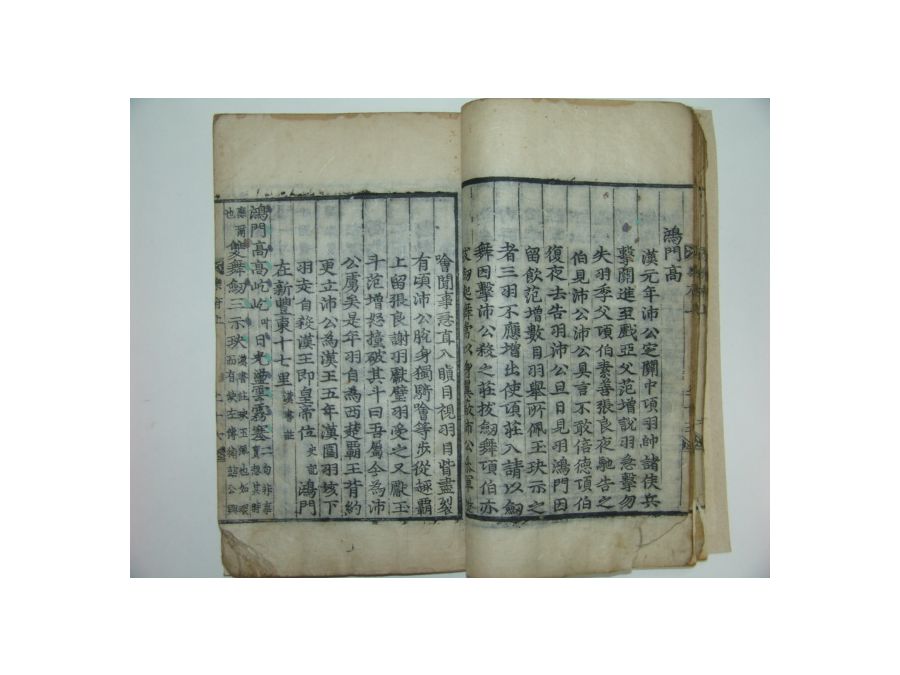 鴻門高
漢元年沛公定關中項羽帥諸侯兵
擊關進至戲亞父范增說羽急擊勿
失羽季父項伯素善張良夜馳告之
伯見沛公沛公具言不敢倍德項伯
復夜去告羽沛公旦日見羽鴻門因
留飲范增數目羽舉所佩玉玦示之
者三羽不應增出使項莊入請以劒
舞因擊沛公殺之莊拔劒舞項伯亦
拔劒起舞常以身翼蔽沛公
噲聞事急直入瞋目視羽目眥盡裂
有頃沛公脫身獨騎噲等步從趍霸
上留張良謝羽獻璧羽受之又獻玉
斗范增怒撞破其斗曰吾屬今為沛
公虜矣是年羽自為西楚霸王背約
更立沛公為漢王五年漢圍羽垓下
羽走自殺漢王即皇帝位 史記 鴻門
在新豐東十七里 漢書註
鴻門高高屹屹 日光盪雲霧塞
雙舞劒三示玦